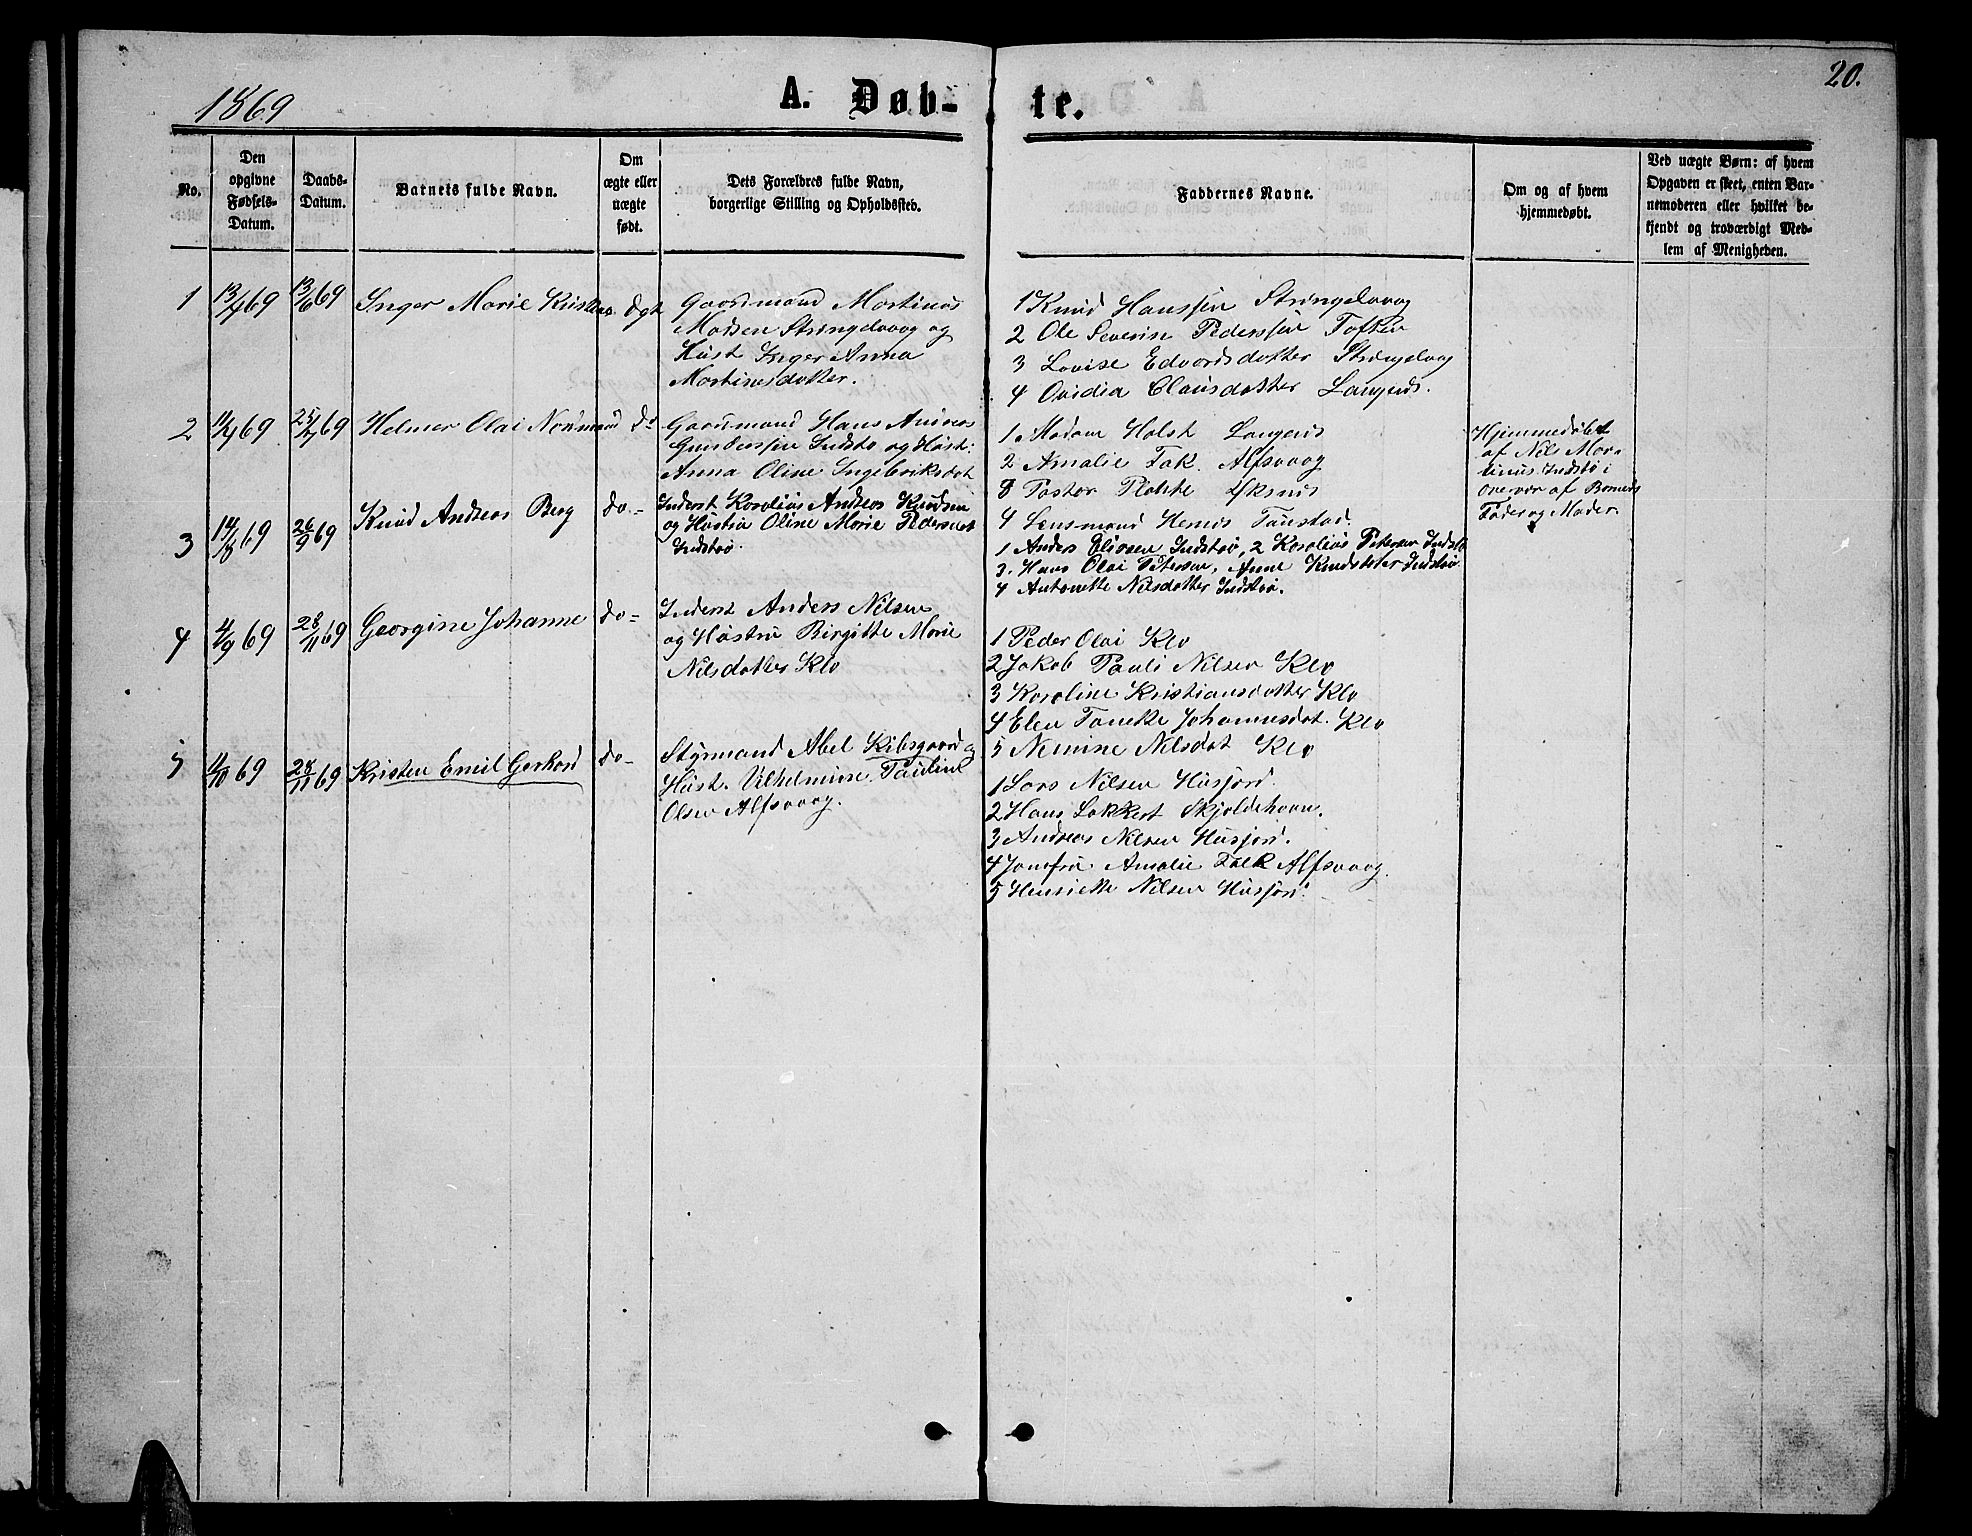 1869
A. Døb-
te.
20.
No.
Den
opgivne
Fødsels-
Datum.
Daabs-
Datum.
Barnets fulde Navn.
Om
ægte eller
uægte
født.
Dets Forældres fulde Navn,
borgerlige Stilling og Opholdssted.
Faddernes Navne.
Om og af hvem
hjemmedøbt.
Ved uægte Børn: af hvem
Opgaven er skeet, enten Bar-
nemoderen eller hvilket be-
kjendt og troværdigt Med-
lem af Menigheden.
1
69
13/6 69
Inger Marie
Ægt
Gaardmand Martinus
Madsen Stringelvaag og
Hust Inger Anna
Martinusdatter.
1 Knud Hanssen Stringelvaag
2 Ole Severin Pederssen Toften
3 Lovise Edvardsdatter Stringelvag
4 Ovidia Clausdatter Langenes.
2
69
25/7 69
Helmer Olai Normand
do
Gaardmand Hans Andreas
Gunderssen Indstø og Hust:
Anna Oline Ingebriksdat
1. Madam Holst Langenes
2 Amalie Falk. Alfsvaag
3 Pastor Øksnes
4 Lensmand Taustad.
Hjemmedøbt
af Nils Mar-
tinus Indstø i
overvær af Barnets
Fader og Moder.
3
14/8 69
26/9 69
Knud Andreas Berg
do-
Inderst Karolius Andreas Knudsen
og Hustru Oline Marie Pedersdat
Indstø.
1 Anders Indstø, 2 Karolius Petersen Indstø
3. Hans Olai Petersen, Anne Knudsdatter Indstø
4 Antonette Nilsdatter Indstø.
4
69
28/11 69
Georgine Johanne
do-
Inderst Anders Nilsen
og Hustru Birgitte Marie
Nilsdatter Klo
1 Peder Olai Klo
2 Jakob Pauli Nilsen Klo
3 Karoline Kristiansdatter Klo
4 Elen Tanette Johannesdat. Klo
5 Nilsdat Klo
5
69
28/11 69
Kristen Emil Gerhard
do-
Styrmand Abel Kibsgaard og
Hust. Vilhelmine Pauline
Olsen Alfsvaag.
1 Lars Nilsen Husjord.
2 Hans Lokkert Skjoldehavn.
3 Andreas Nilsen Husjord.
4 Jomfru Amalie Falk Alfsvaag.
5 Henriette Nilsen Husjord